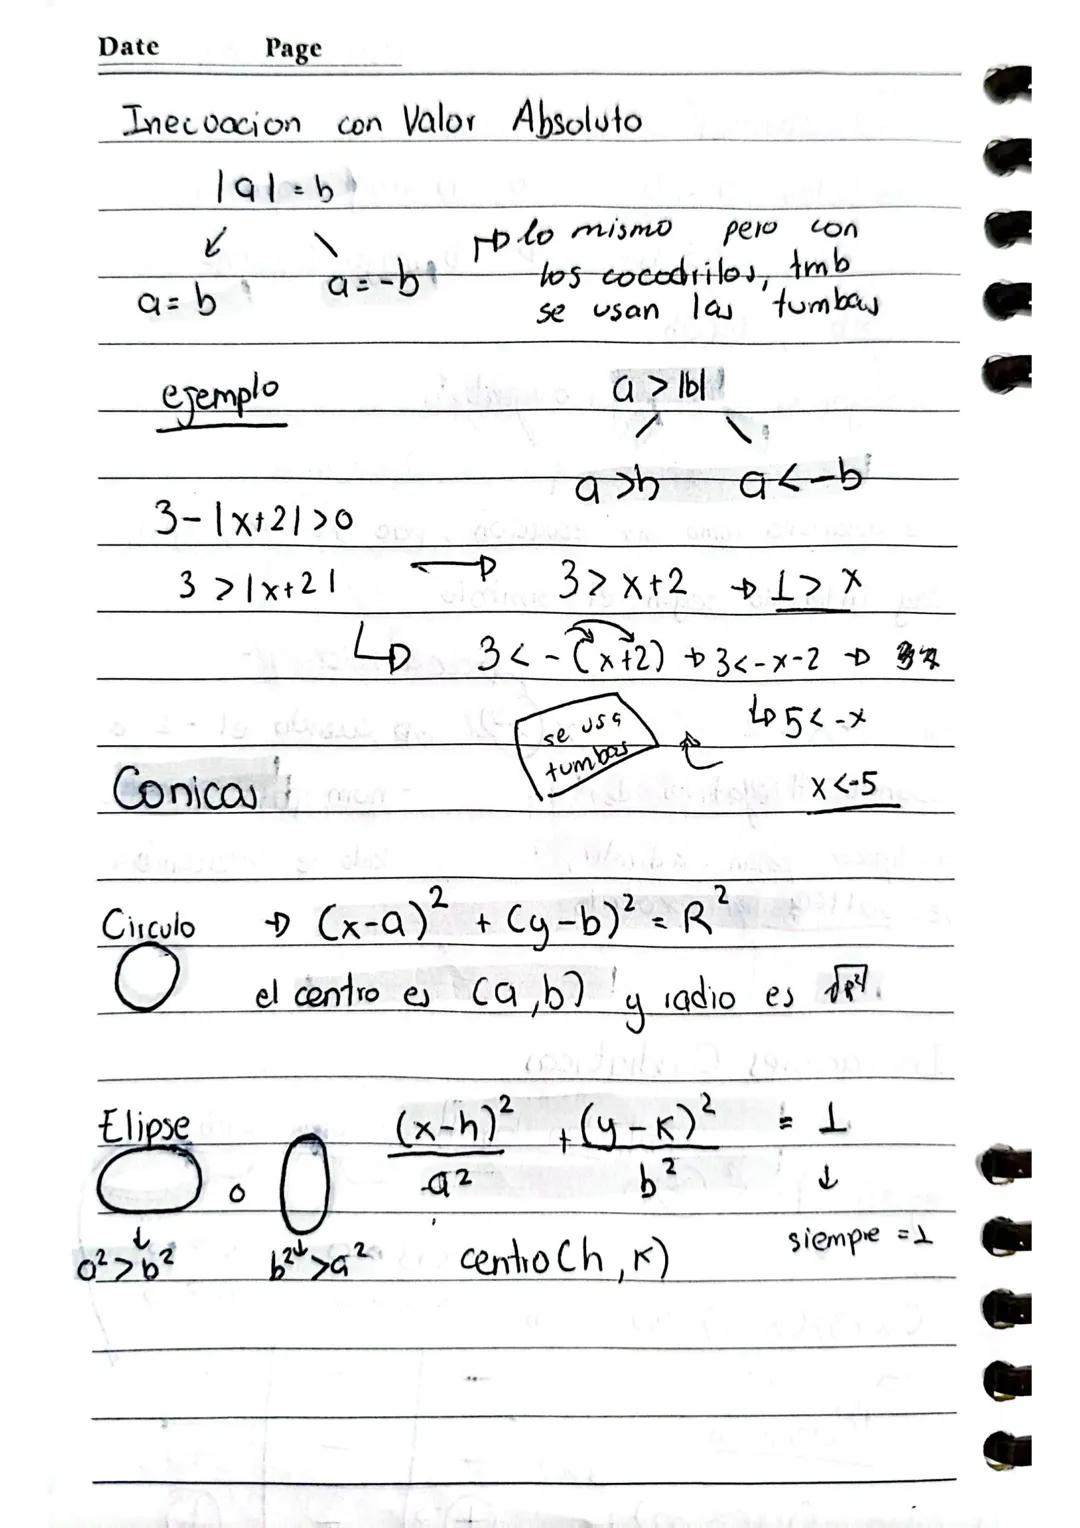 Date Page
Inecuacion con Valor Absoluto
|a| = b
a = b a = -b
↳ lo mismo pero con
los cocodrilos, tmb
se usan las tumbas
ejemplo
a > |b|
a > b a < -b
3 - |x+2| > 0
3 > |x+2| → 3 > x+2 → 1 > x
↳ 3 < -(x+2) → 3 < -x-2 →
↳ 5 < -x
se usa
tumbas
x < -5
Conicas
Circulo → (x-a)² + (y-b)² = R²
el centro es (a,b) y radio es √R²
Elipse (x-h)²/a² + (y-k)²/b² = 1
o
↓ siempre = 1
a² > b² b² > a² centro (h, k)